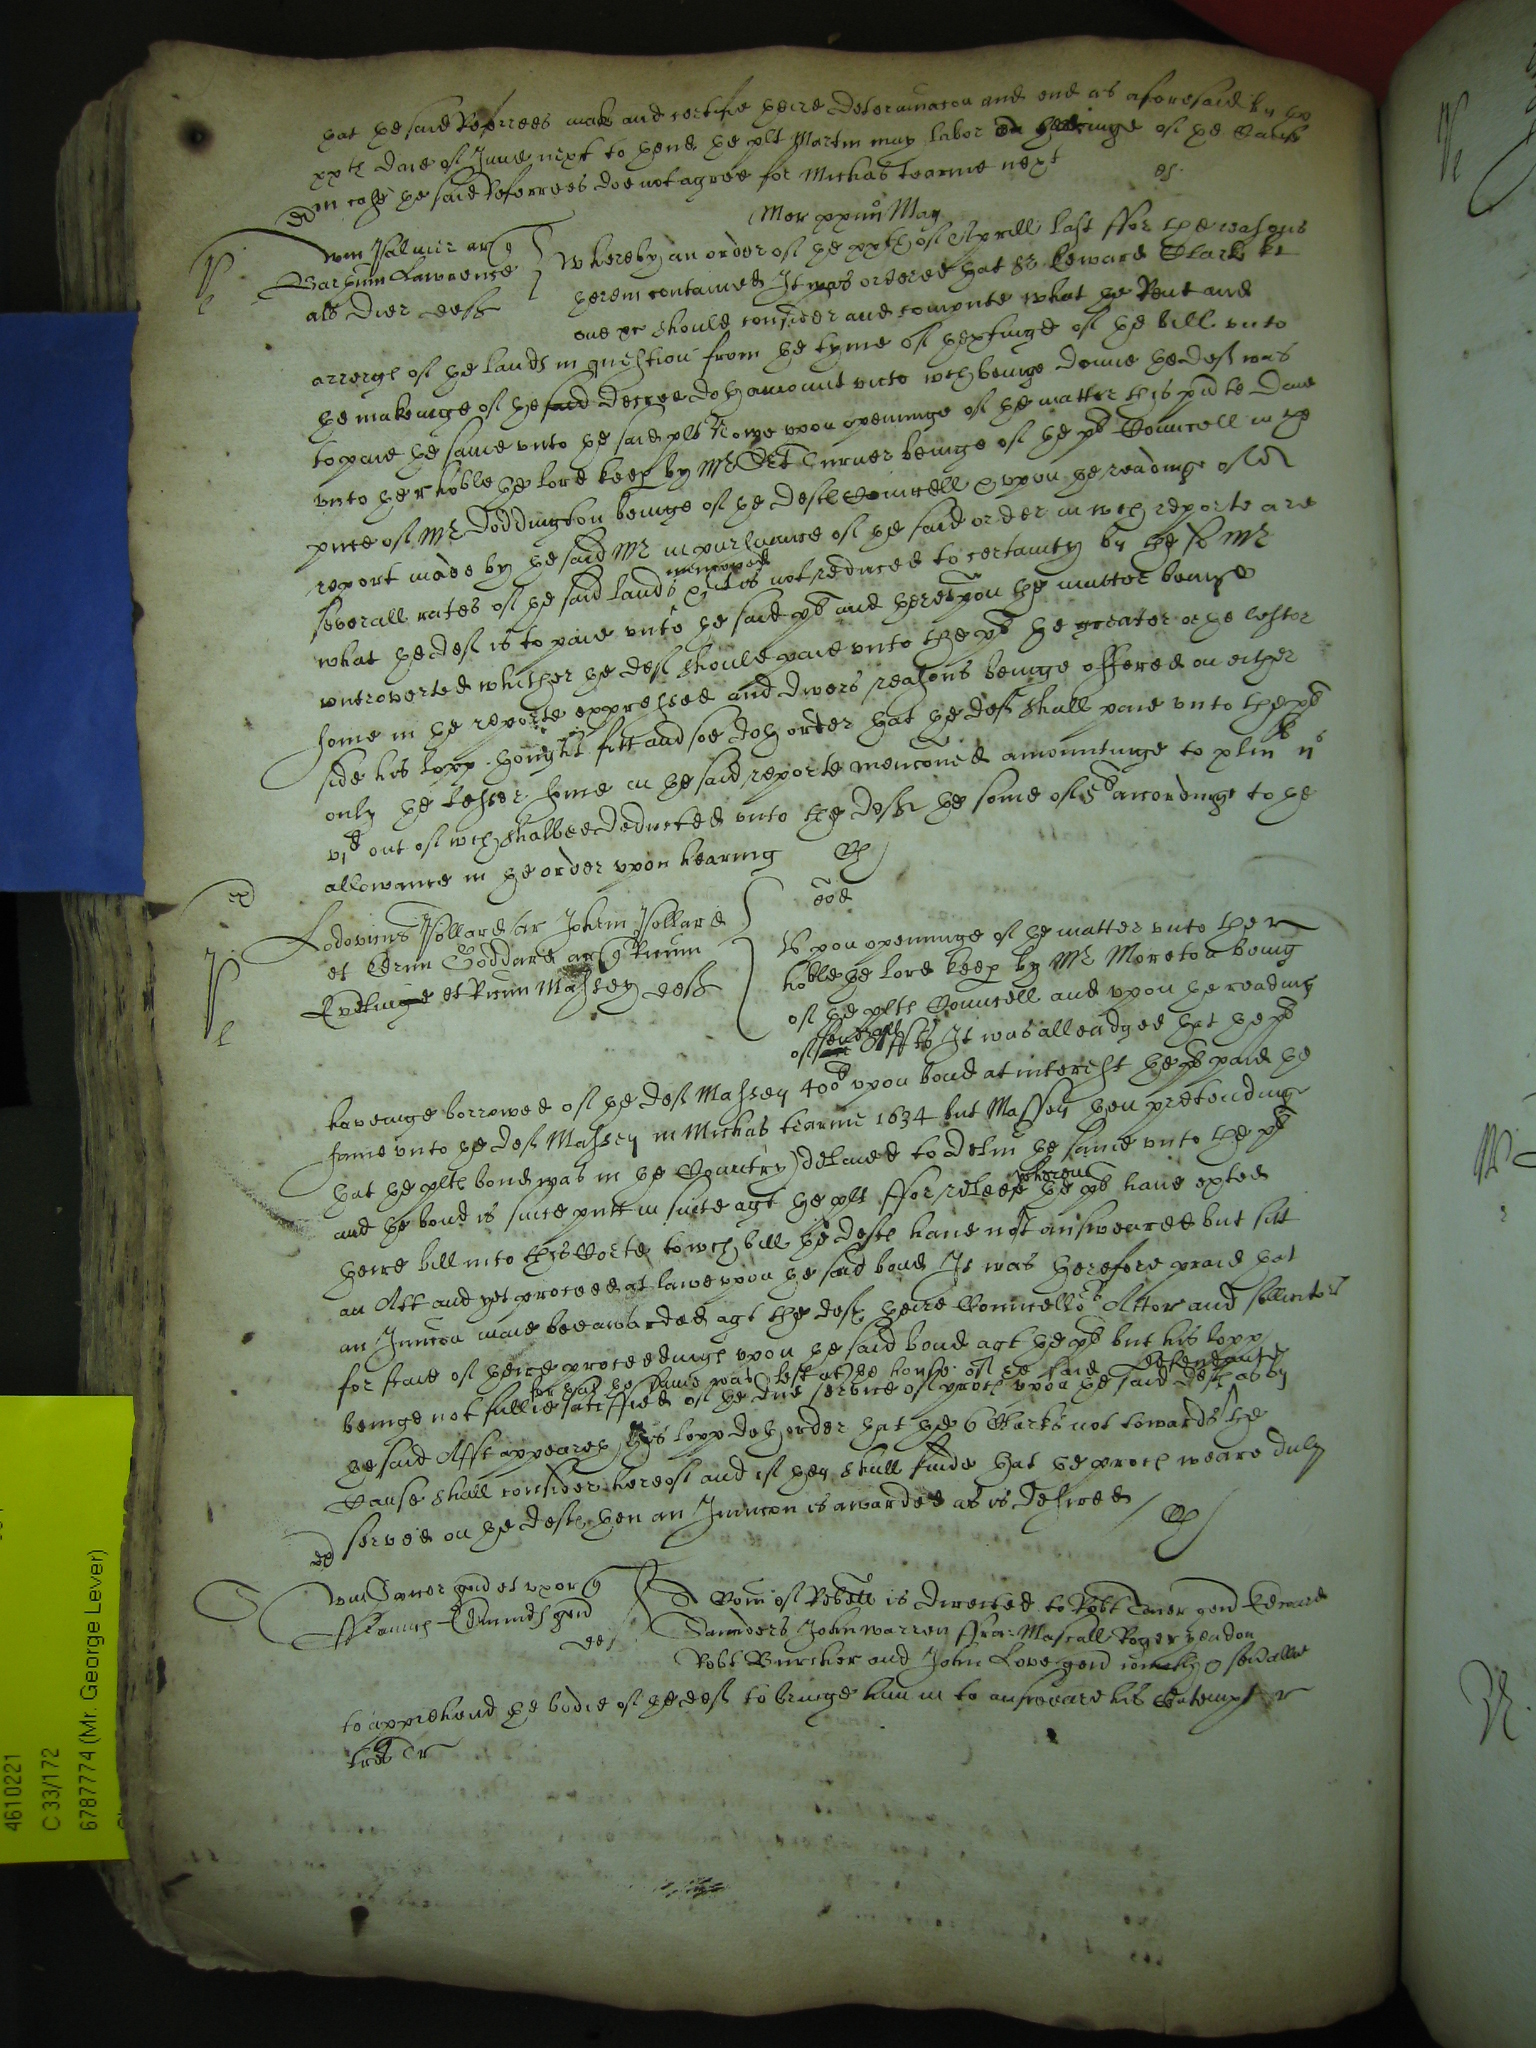 that the said Referrees make and certifie theire determinacon and end as aforesaid by the
xxth daie of June next to thend the plt Martin may labor hearinge of the Cause
in case the said Referrees doe not agree for Michas tearme next
Mer xxiiii May
Wm Palmer ar
Lawrence
als Dier deft
Whereby an order of the xxth of Aprill last ffor the reasons
therein contained It was ordered that Sr Edward Clark kt
one &c should consider and compute what the Rent and
arrerges of the lands in question from the tyme of thexhinge of the bill unto
the makeinge of the said decree doth amount unto wch beinge donne the deft was
to paie the same unto the said plt Nowe upon openinge of the matter this pnte daie
unto the r hoble the lord keep by Mr Turner beinge of the pl Councell in the
pnce of Mr Doddington beinge of the defts Councell & upon the readinge of a
report made by the said Mr in pursuance of the said order in wch reporte are
severall rates of the said lands menconed & it is not reduced to certainty by the sd Mr
what the deft is to paie unto the said pl and thereupon the matter beinge
controverted whither the deft should paie unto the pl the greater or the lesser
some in the reporte expressed and divers reasons beinge offered on either
side his lopp thought fitt and soe doth order that the deft shall paie unto the pl
only the lesser some in the said reporte menconed amountinge to xliii li ii s
vi d out of wch shalbee deducted unto the deft the some of 5 l accordinge to the
allowance in the order upon hearing
eod
Lodovicus Pollard ar Johem Pollard
et Goddard ar Ricum
et Ricum Massey defts
Upon openinge of the matter unto the r
hoble the lord keep by Mr Moreton being
of the plts Councell and upon the reading
of severall Affts It was alleadged that the pl
haveinge borrowed of the deft Massey 400l upon bond at interest the pl paid the
same unto the deft Massey in Michas tearme 1634 but Massey then pretending
that the plts bond was in the Countrey delaied to deliver the same unto the pl
and the bond is since putt in suite agt the plt ffor releefe wherein the pl have exhted
theire bill into this Corte to wch bill the defts have not answeared but sitt
an Att and yet proceed at lawe upon the said bond It was therefore praid that
an Iniuncon maie bee awarded agt the deft theire Councellors Attor and sollicitors
for staie of theire proceedings upon the said bond agt the pl but his lopp
beinge not fullie satisfied of the due service of proces upon the said defts as by
for that the same was left at the house of the said defendants
the said Afft appeareth his lopp doth order that the 6 Clarks not towards the
Cause shall consider thereof and if they shall finde that the proces weare duly
served on the defts then an Iniuncon is awarded as is desired
Wm gen et uxor
Edmunds gen
def
A Comn of Rebell is directed to Robt gen Edward
Saunders John Warren ffra: Mascall Roger
Robt and John Love gen
to apprehend the bodie of the deft to bringe him in to answeare his Contempt r
4610221
C 33/172
6787774 (Mr. George Lever)